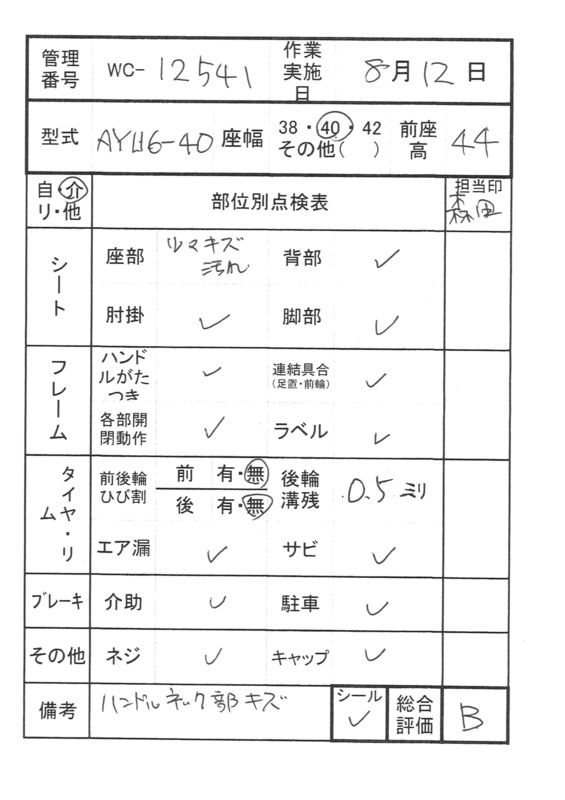 管理番号 WC-12541 作業実施日 8月12日
型式 AYU6-40 座幅 38・40・42 その他( ) 前座高 44
自・介 リ・他 部位別点検表 担当印 森田
シート 座部 キズ 汚れ 背部 ✓
肘掛 ✓ 脚部 ✓
フレーム ハンドルがたつき ✓ 連結具合 (足置・前輪) ✓
各部開閉動作 ✓ ラベル ✓
タイヤ・リム 前後輪ひび割 前 有・無 後輪溝残 0.5 ミリ
後 有・無
エア漏 ✓ サビ ✓
ブレーキ 介助 ✓ 駐車 ✓
その他 ネジ ✓ キャップ ✓
備考 ハンドルネック部キズ シール ✓ 総合評価 B